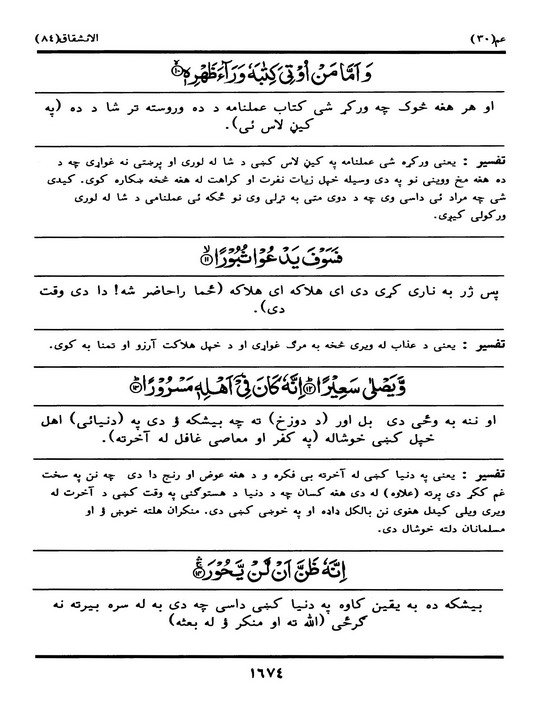 عم(٣٠) الانشقاق(٨٤)
وَاَمَّا مَنْ اُوْتِیَ کِتٰبَهٗ وَرَآءَ ظَهْرِهٖ ۙ﴿۱۰﴾
او هر هغه څوک چه ورکړ شی کتاب عملنامه د ده وروسته تر شا د ده (په
کیڼ لاس ئی).
تفسیر : یعنی ورکړه شی عملنامه په کیڼ لاس کښی د شا له لوری او پرښتی نه غواړی چه د
ده هغه مخ ووینی نو په دی وسیله خپل زیات نفرت او کراهت له هغه څخه ښکاره کوی. کیدی
شی چه مراد ئی داسی وی چه د دوی متی به تړلی وی نو ځکه ئی عملنامی د شا له لوری
ورکولی کیږی.
فَسَوْفَ یَدْعُوْا ثُبُوْرًا ۙ﴿۱۱﴾
پس ژر به ناری کړی دی ای هلاکه ای هلاکه (ځما راحاضر شه! دا دی وقت
دی).
تفسیر : یعنی د عذاب له ویری څخه به مرګ غواړی او د خپل هلاکت آرزو او تمنا به کوی.
وَّیَصْلٰی سَعِیْرًا ؕ﴿۱۲﴾ اِنَّهٗ کَانَ فِیْۤ اَهْلِهٖ مَسْرُوْرًا ؕ﴿۱۳﴾
او ننه به وځی دی بل اور (د دوزخ) ته چه بیشکه ؤ دی په (دنیائی) اهل
خپل کښی خوشاله (په کفر او معاصی غافل له آخرته).
تفسیر : یعنی په دنیا کښی له آخرته بی فکره و د هغه عوض او رنج دا دی چه نن په سخت
غم ککړ دی پرته (علاوه) له دی هغه کسان چه د دنیا د هستوګنی په وقت کښی د آخرت له
ویری ویلی کیدل هغوی نن بالکل ډاډه او په خوښی کښی دی. منکران هلته خوښ ؤ او
مسلمانان دلته خوشال دی.
اِنَّهٗ ظَنَّ اَنْ لَّنْ یَّحُوْرَ ۚۛ﴿۱۴﴾
بیشکه ده به یقین کاوه په دنیا کښی داسی چه دی به له سره بیرته نه
ګرځی (الله ته او منکر ؤ له بعثه)
١٦٧٤